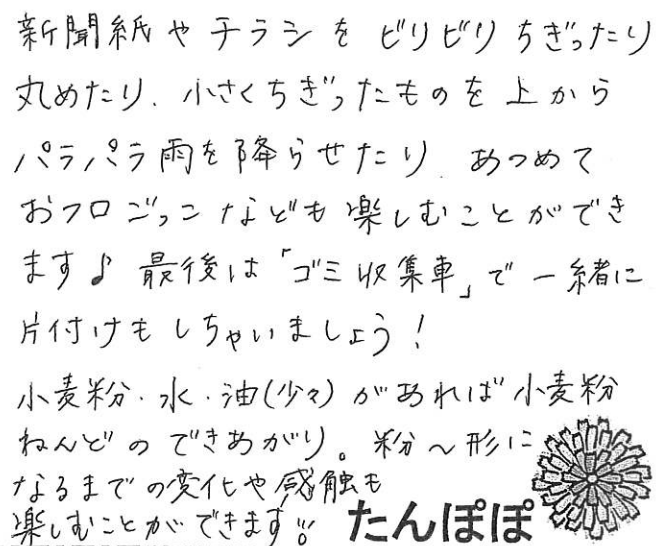 新聞紙やチラシをビリビリちぎったり
丸めたり、小さくちぎったものを上から
パラパラ雨を降らせたり、あつめて
おフロごっこなども楽しむことができ
ます♪ 最後は「ゴミ収集車」で一緒に
片付けもしちゃいましょう！
小麦粉・水・油(少々)があれば小麦粉
ねんどのできあがり。粉～形に
なるまでの変化や感触も
楽しむことができます!!
たんぽぽ